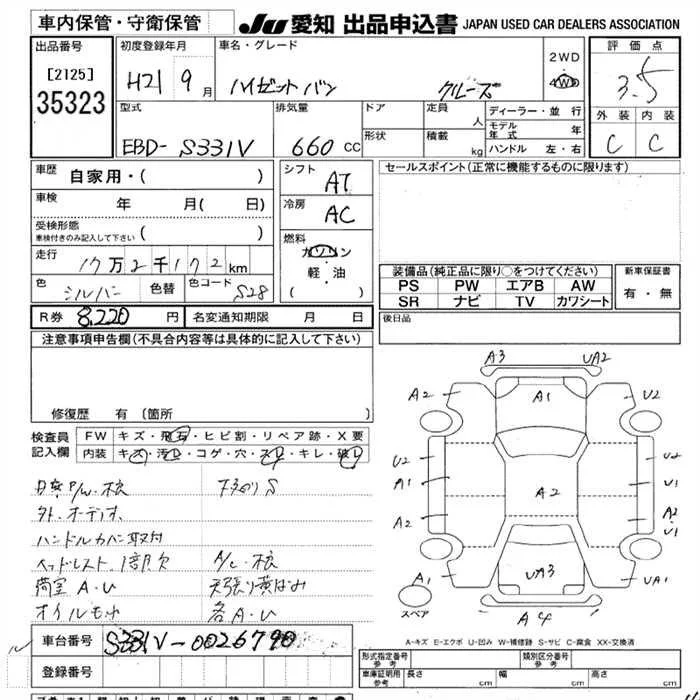 車内保管・守衛保管
JU 愛知 出品申込書 JAPAN USED CAR DEALERS ASSOCIATION
出品番号
[2125]
35323
初度登録年月
H21 9 月
車名・グレード
ハイゼットバン クルーズ
2WD
4WD
評価点
3.5
外装 内装
C C
型式
EBD- S331V
排気量
660 CC
ドア
形状
定員 人
積載 kg
ディーラー・並行
モデル年式 年
ハンドル 左・右
車歴
自家用・( )
車検 年 月( 日)
受検形態
車検付きのみ記入して下さい ( )
走行
17万2千172km
色
シルバー
色替
色コード
S28
シフト
AT
冷房
AC
燃料
ガソリン
軽・油
( )
セールスポイント(正常に機能するものに限ります)
装備品(純正品に限り○をつけてください)
PS PW エアB AW
SR ナビ TV カワシート
新車保証書
有・無
R券 8,220 円 名変通知期限 月 日
後日品
注意事項申告欄(不具合内容等は具体的に記入して下さい)
修復歴 有 [箇所
検査員記入欄
FW キズ・飛石・ヒビ割・リペア跡・X要
内装 キズ・汚レ・コゲ・穴・スレ・キレ・破レ
外.オーディオ.
ハンドルカバー取付
ヘッドレスト 1部欠
荷室 A.U
オイルモレ
下廻り S
天張り黄ばみ
各A.U
A3 UA2
A2 A1 U2
U2 U2
A1 U1
A2 A2 A2
U1
A1 UA3 UA1
A4
スペア
A-キズ E-エクボ U-凹み W-補修跡 S-サビ C-腐食 XX-交換済
車台番号 S331V-0026790
登録番号
形式指定番号
参考
類別区分番号
参考
車庫証明用
参考
長さ cm 幅 cm 高さ cm